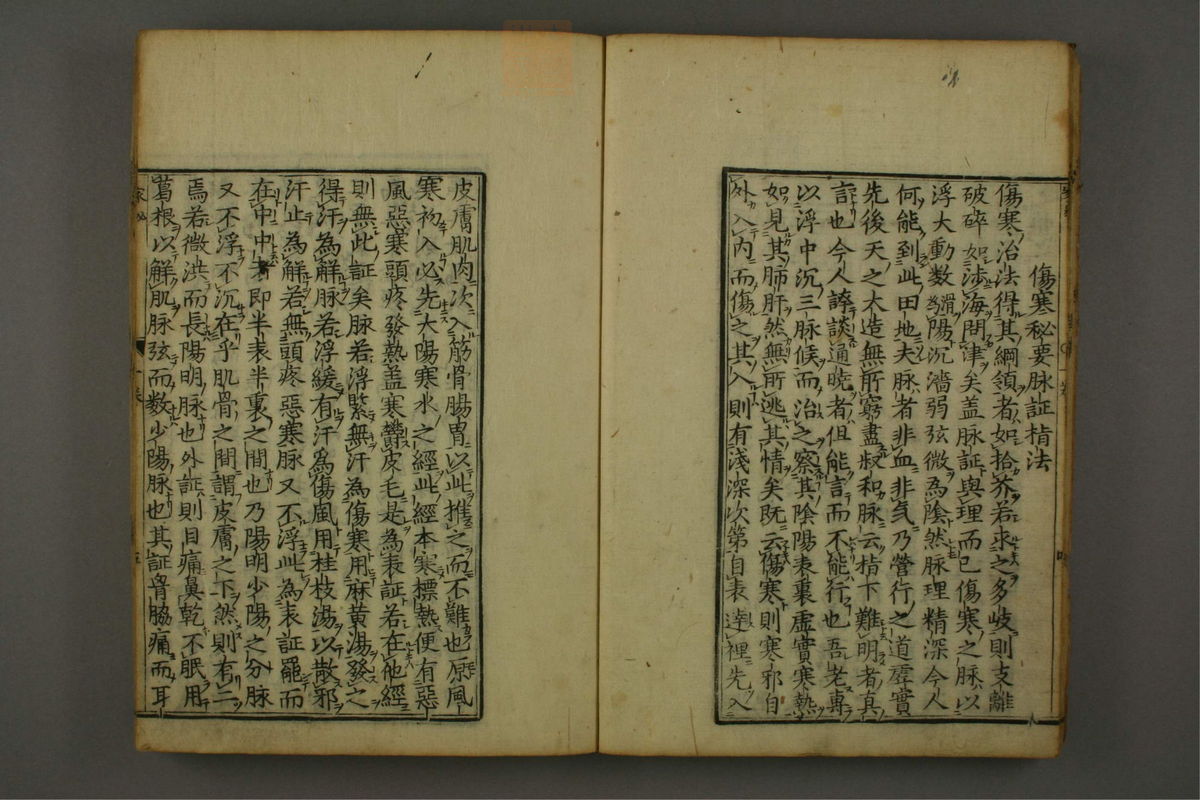 傷寒秘要脉証指法
傷寒治法得其綱領者如拾芥若求之多岐則支離
破碎如渉海問津矣盖脉証與理而已傷寒之脉以
浮大動数滑為陽沉濇弱弦微為陰然脉理精深今人
何能到此田地夫脉者非血非气乃營行之道虚實
先後天之大造無所窮盡叔和脉云指下難明者真
言也今人誇談通曉者但能言而不能行也吾老専
以浮中沉三脉候而治之察其陰陽表裏虚實寒熱
如見其肺肝然無所逃其情矣既云傷寒則寒邪自
外入内而傷之其入則有淺深次第自表達裡先入
皮膚肌肉次入筋骨腸胃以此推之而不難也原風
寒初入必先大陽寒水之經此經本寒標熱便有惡
風惡寒頭疼發熱盖寒欝皮毛是為表証若在他經
則無此証矣脉若浮緊無汗為傷寒用麻黄湯發之
得汗為解脉若浮緩有汗為傷風用桂枝湯以散邪
汗止為解若無頭疼惡寒脉又不浮此為表証罷而
在中中者即半表半裏之間也乃陽明少陽之分脉
又不浮不沉在乎肌骨之間謂皮膚之下然則有二
焉若微洪而長陽明脉也外証則目痛鼻乾不眠用
葛根以解肌脉弦而数少陽脉也其証脅脇痛而耳